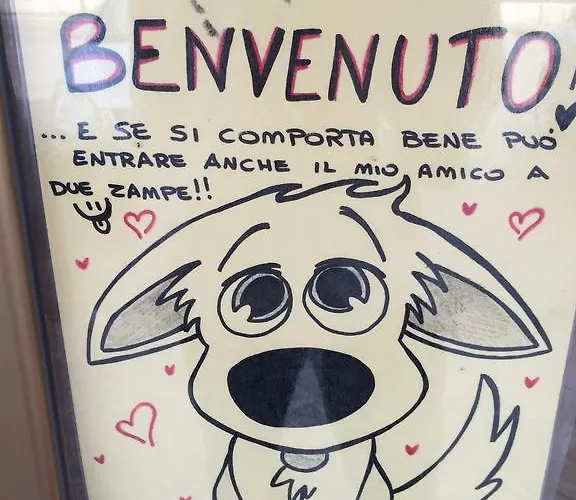 BENVENUTO!
... E SE SI COMPORTA BENE PUÓ
ENTRARE ANCHE IL MIO AMICO A
DUE ZAMPE!!